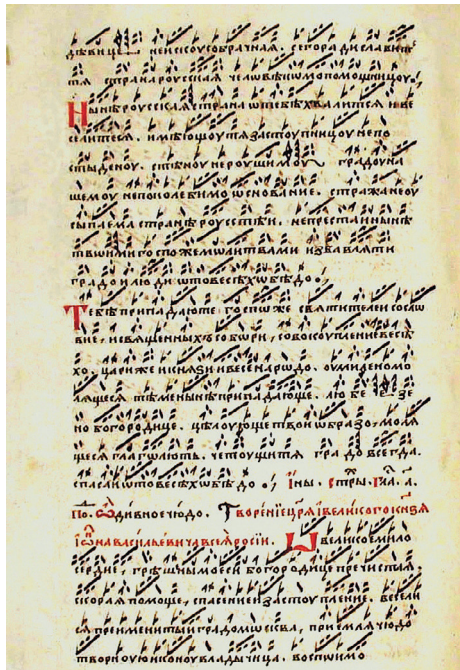 дѣвице неискоусобрачная. сегорадиславит
тя странароусская человѣкомопомощницоу.
Нынѣроусскаястрана ѡтебѣхвалится ивесе
селитеся. имѣющоутязастоупницоу непо
стыденоу. стѣноу нероушимоу градоуна
щемоу непоколебимо ѡснование. стражанеоу
сыпаема странѣ роусстѣи. непрестаннынѣ
твоимигоспожемолитвами избавляти
градоилюди ѡтовсѣхобѣдо.
Тебѣприпадаюте госпоже святителеисосло
вие, исвященныхособори, совокоуплениевсѣ
хо. цариже икнязи ивесенародо. оумиленомо
лящеся тѣменынѣприпадающе. любе зе
но богородице. цѣлоующетвоиѡбразо, моля
щеся глаголюте. чстоущитя градо всегда.
спасаиѡтовсѣхобѣдо. Iны. стры. гла. а.
По. Ѡ дивноечюдо. Творениецря великогокнзя
Іѡанавасильевичавсеяросіи. Ѡ великоемило
сердие, грѣшнымоеси богородице пречистая.
скорая помоще, спасениеизастоупление. весели
ся преименитыиградомосква, приемлячюдо
творноуюиконоувладычица. воспоимо